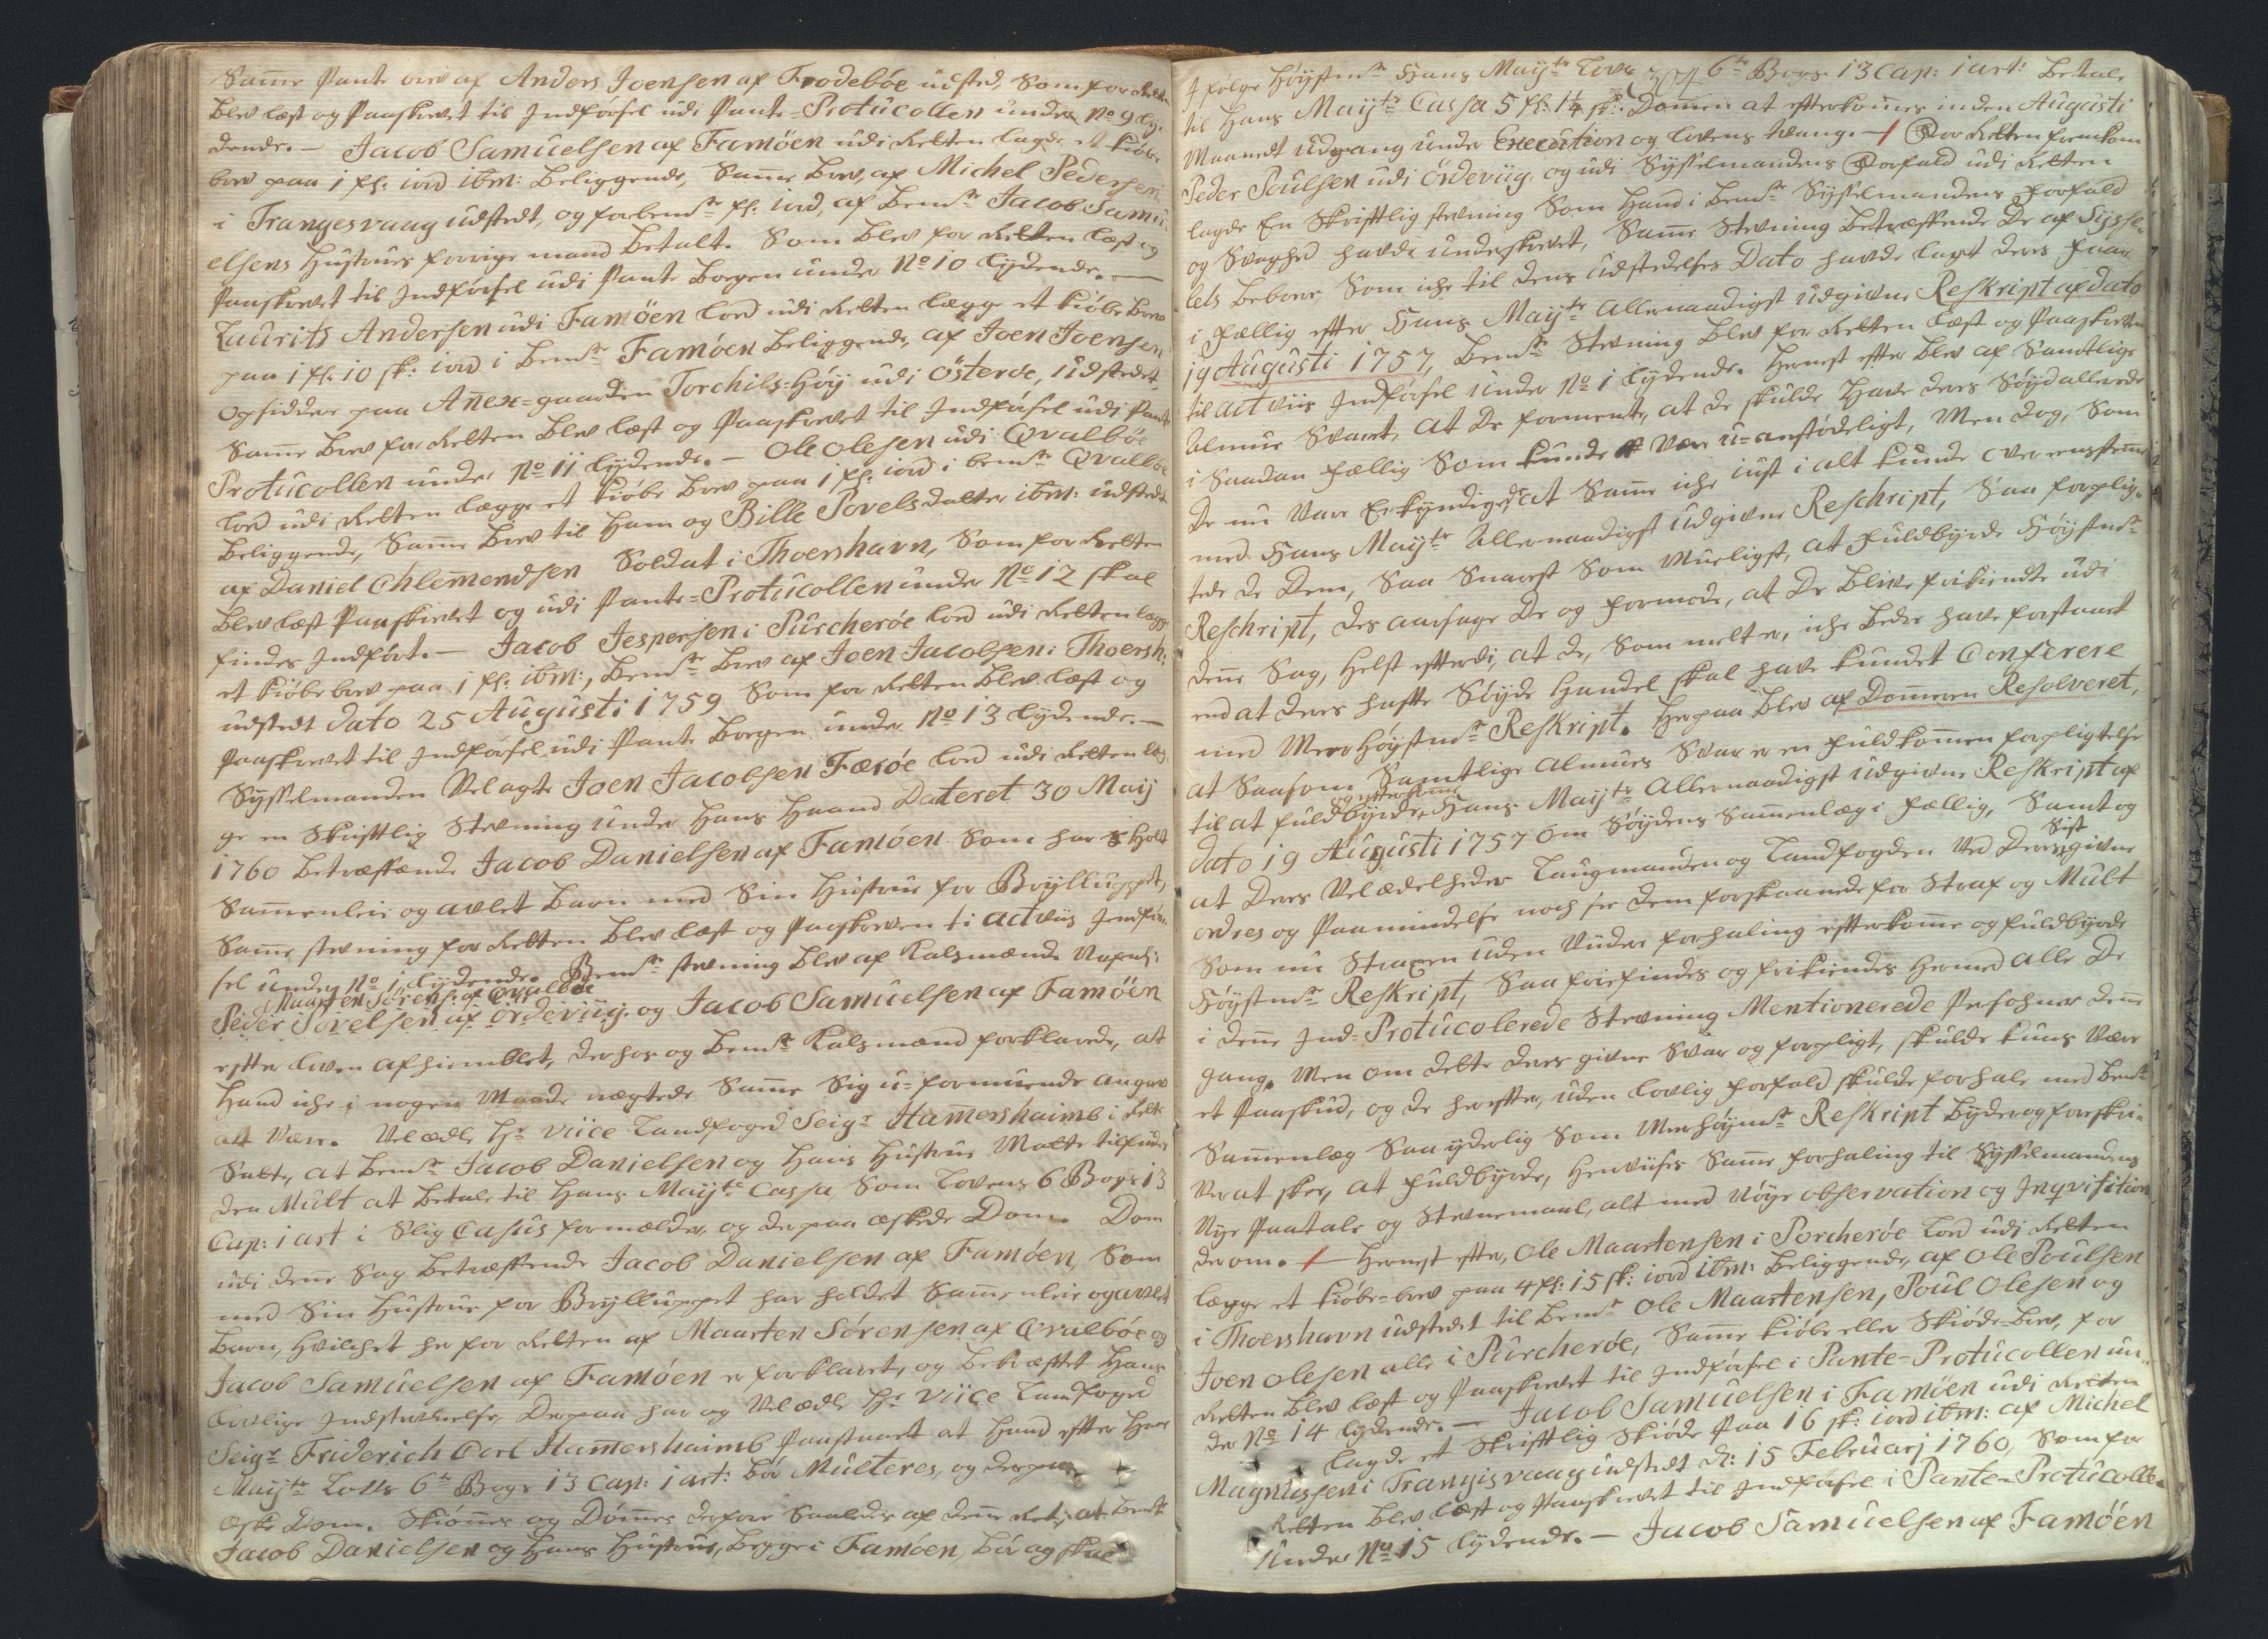 Samme Pante brev af Anders Joensen af Frodebøe udsted, Som for Retten
Blev læst og Paaskrevet til Indførsel udi Pante-Protucollen under No 9 ly-
dende. — Jacob Samuelsen af Famøen udi Retten lagde et kiøbe
brev paa 1 fl: iord ibm: Beliggende, Samme Brev, af Michel Pedersen
i Trangesvaag udstedt, og forbemte fl: iord, af Bemte Jacob Samu-
elsens Hustrues forrige mand Betalt. Som Blev for Retten læst og
Paaskrevet til Indførsel udi Pante Bogen under No 10 lydende. —
Laurits Andersen udi Famøen lod udi Retten lægge et kiøbe Brev
paa 1 fl: 10 sk: iord i Bemte Famøen Beliggende, af Joen Joensen
Opsidder paa Anex-gaarden Torchils-Høy udi Østerøe, udstedet,
Samme Brev for Retten Blev læst og Paaskrevet til Indførsel udi Pante
Protucollen under No 11 lydende. — Ole Olesen udi Qvalbøe
lod udi Retten lægge et kiøbe Brev paa 1 fl: iord i bemte Qvalbøe
Beliggende, Samme Brev til Ham og Bille Povelsdatter ibm: udstedt
af Daniel Chlemendsen Soldat i Thoershavn, Som for Retten
Blev læst Paaskrevet og udi Pante-Protucollen under No 12 skal
findes Indført. — Jacob Jespersen i Purcherøe lod udi Retten lægge
et kiøbe brev paa 1 fl: ibm:, Bemte Brev af Joen Jacobsen i Thoersh:
udstedt Dato 25 Augusti 1759 Som for Retten Blev læst og
Paaskrevet til Indførsel udi Pante Bogen under No 13 lydende. —
Sysselmanden Velagte Joen Jacobsen Færøe lod udi Retten læg-
ge en Skriftlig Stevning under Hans Haand Dateret 30 Maij
1760 Betræffende Jacob Danielsen af Famøen Som har Holdt
Sammenleie og avlet Barn med Sin Hustrue for Brylluppet,
Samme stevning for Retten Blev læst og Paaskreven til actviis Indfør-
sel under No 1 lydende. Bemte stevning Blev af Kalsmænde
Maarten Sørens: af Qvalbøe
Peder Povelsen af Ordeviig. og Jacob Samuelsen af Famøen
efter Loven afhiemblet, derhos og Bemte Kalsmænd forklarede, at
Hand iche i nogen Maade nægtede Samme Sig u-formuende angav
att være. Velædle Hr Viice Landfoged Seigr Hammershaimb i Rette
Satte, at Bemte Jacob Danielsen og Hans Hustrue Maatte tilfindes
den Mult at Betale til Hans Mayts Cassa Som Lovens 6 Bogs 13
Cap: 1 art i Slig Casus formælder, og derpaa æskede Dom. Dom
udi denne Sag Betræffende Jacob Danielsen af Famøen, Som
med Sin Hustrue for Brylluppet har holdet Sammenleie og avlet
Barn, Hvilchet her for Retten af Maarten Sørensen af Qvalbøe og
Jacob Samuelsen af Famøen er forklaret, og Bekræftet Hans
Lovlige Indstævnelse, Derpaa har og Velædle Hr Viice Landfoged
Seigr Friderich Carl Hammershaimb Paastaaet at Hand efter Hans
Mayts Lovs 6te Bogs 13 Cap: 1 art: bør Multeres, og derpaa
Æske Dom. Skiønnes og Dømmes derfore Saaledes af denne Ret, at Bemte
Jacob Danielsen og Hans Hustrue, Begge i Famøen, bør og skal
I følge Høystmte Hans Mayts Lovs 6te Bogs 13 Cap: 1 art: Betale
til Hans Mayts Cassa 5 fl: 1¼ sk: Dommen at efterkommes inden Augusti
Maanedt Udgang under Execution og Lovens tvang. — For Retten fremkom
Peder Poulsen udi Ørdeviig. og udi Sysselmandens Forfald udi Retten
lagde En Skriftlig stevning Som Hand i Bemte Sysselmandens Forfald
og Svaghed havde underskrevet, Samme Stevning Betræffende De af Sysse-
lets Beboere, Som iche til dens Udstedelses Dato havde lagt deres Faar
i Fællig efter Hans Mayts Allernaadigst udgivne Reskript af dato
19 Augusti 1757, Bemte Stevning Blev for Retten læst og Paaskreven
til actviis Indførsel under No 1 lydende. Hernest efter Blev af Samtlige
Almue Svaret, at De formente, at de skulde Have deres Søyd allerede
i Saadan Fællig Som kunde være u-anstødeligt, Men dog, Som
de nu vare Erkyndiget at Samme iche just i alt kunde overensstemme
med Hans Mayts Allernaadigst Udgivne Reschript, Saa forplig-
tede De Dem, Saa Snarest Som Mueligst, at Fuldbyrde Høystmte
Reschript, des aarsage De og formode, at De Blive frikiendte udi
denne Sag, Helst efterdi at de, Som melt er, iche Bedre have forstaaet
end at deres hafte Søyde Handel skal have kundet Conferere
med Meer Høystmte Reskript. Herpaa Blev af Dommeren Resolveret,
at Saasom Samtlige Almues Svar er en Fuldkommen forpligtelse
og efterkomme
til at fuldbyrde, Hans Mayts Allernaadigst udgivne Reskript af
Dato 19 Augusti 1757 om Søydens Sammenlæg i Fællig, Samt og
Sist
at Deres Velædelheder Laugmanden og Landfogden ved deres givne
ordres og Paamindelse noch seer dem forskaanede for Straf og Mult
Som nu Straxen uden Viidere forhaling efterkomme og fuldbyrde
Høystmte Reskript, Saa friefindes og frikiendes Hermed alle De
i denne Ind-Protucolerede Stevning Mentionerede Persohner denne
gang. Men om dette deres givne Svar og forpligt, skulde kuns være
et Paaskud, og de herefter, uden lovlig forfald skulde forhale med Bemte
Sammenlæg Saa yderlig Som Meerhøymte Reskript Byder og foreskri-
ver at skee, at Fuldbyrde, Henviises Samme forhaling til Sysselmandens
Nye Paatale og Stevnemaal, alt med Nøye observation og Inqvisition
derom. — Hernest efter, Ole Maartensen i Porcherøe lod udi Retten
lægge et kiøbe-brev paa 4 fl: 15 sk: iord ibm: Beliggende, af Ole Poulsen
i Thoershavn udstedet til Bemte Ole Maartensen, Poul Olesen og
Joen Olesen alle i Purcherøe, Samme kiøbe eller Skiøde-Brev, for
Retten Blev læst og Paaskrevet til Indførsel i Pante-Protucollen un-
der No 14 lydende. — Jacob Samuelsen i Famøen udi Retten
lagde et Skriftlig Skiøde Paa 16 sk: iord ibm: af Michel
Magnussen i Trangisvaag udstedt d: 15 Februarj 1760, Som for
Retten Blev læst og Paaskrevet til Indførsel i Pante-Protucolle-
Under No 15 lydende. — Jacob Samuelsen af Famøen